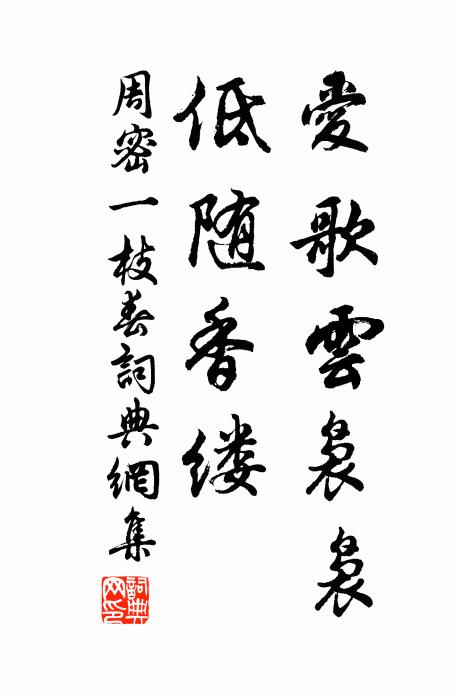 愛歌雲裊裊
低随香缕
周密一枝春詞典網集
詞典网印